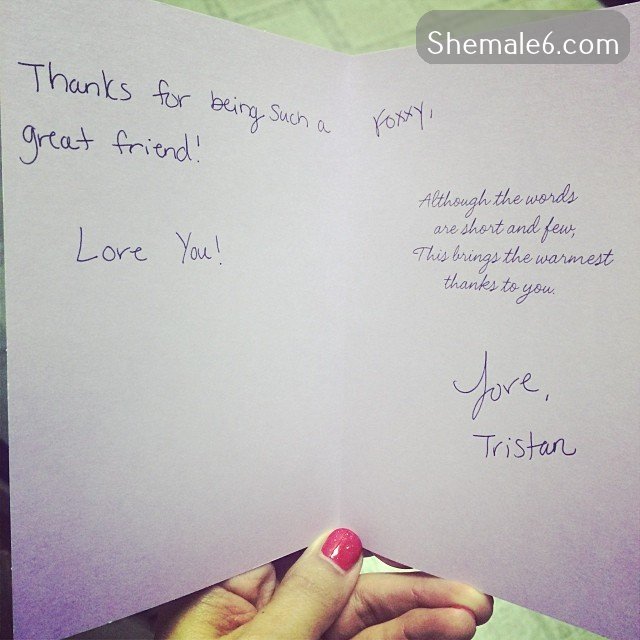 Shemale6.com
Thanks for being such a
great friend!
Love You!
Roxxy,
Although the words
are short and few,
This brings the warmest
thanks to you.
Love,
Tristan